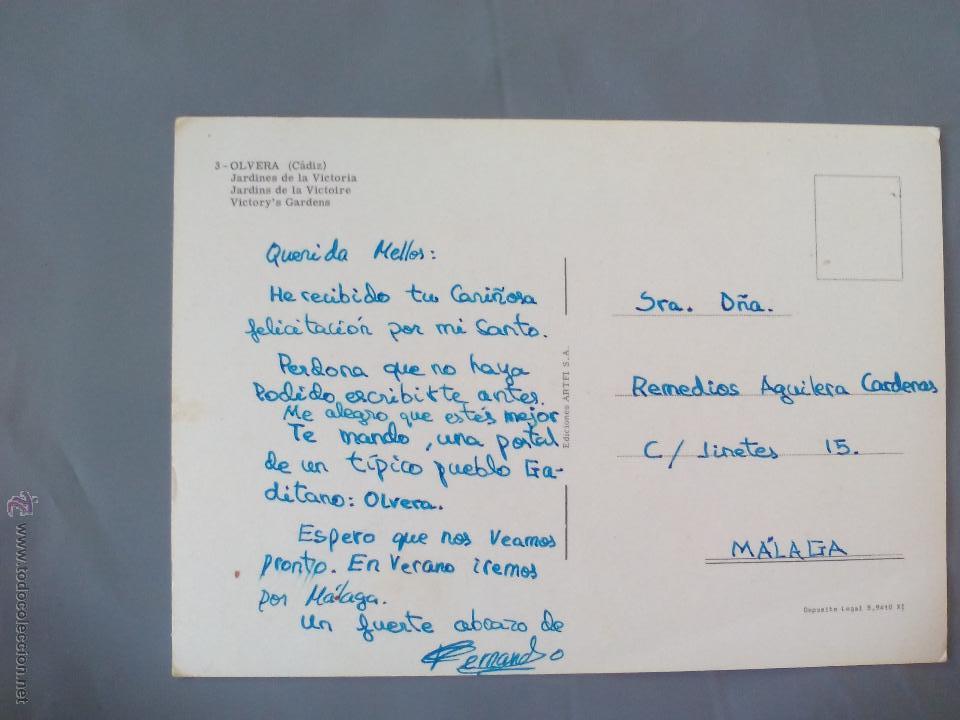 3 - OLVERA (Cádiz)
Jardines de la Victoria
Jardins de la Victoire
Victory's Gardens
Querida Mellos:
He recibido tu Cariñosa
felicitación por mi Santo.
Perdona que no haya
Podido escribirte antes.
Me alegro que estés mejor
Te mando, una postal
de un típico pueblo Ga-
ditano: Olvera.
Espero que nos veamos
pronto. En Verano iremos
por Málaga.
Un fuerte abrazo de
Fernando
Ediciones ARTFI S.A.
Sra. Dña.
Remedios Aguilera Cardenas
C/ Jinetes 15.
MÁLAGA
Deposito Legal B.9410 XI
www.todocoleccion.net